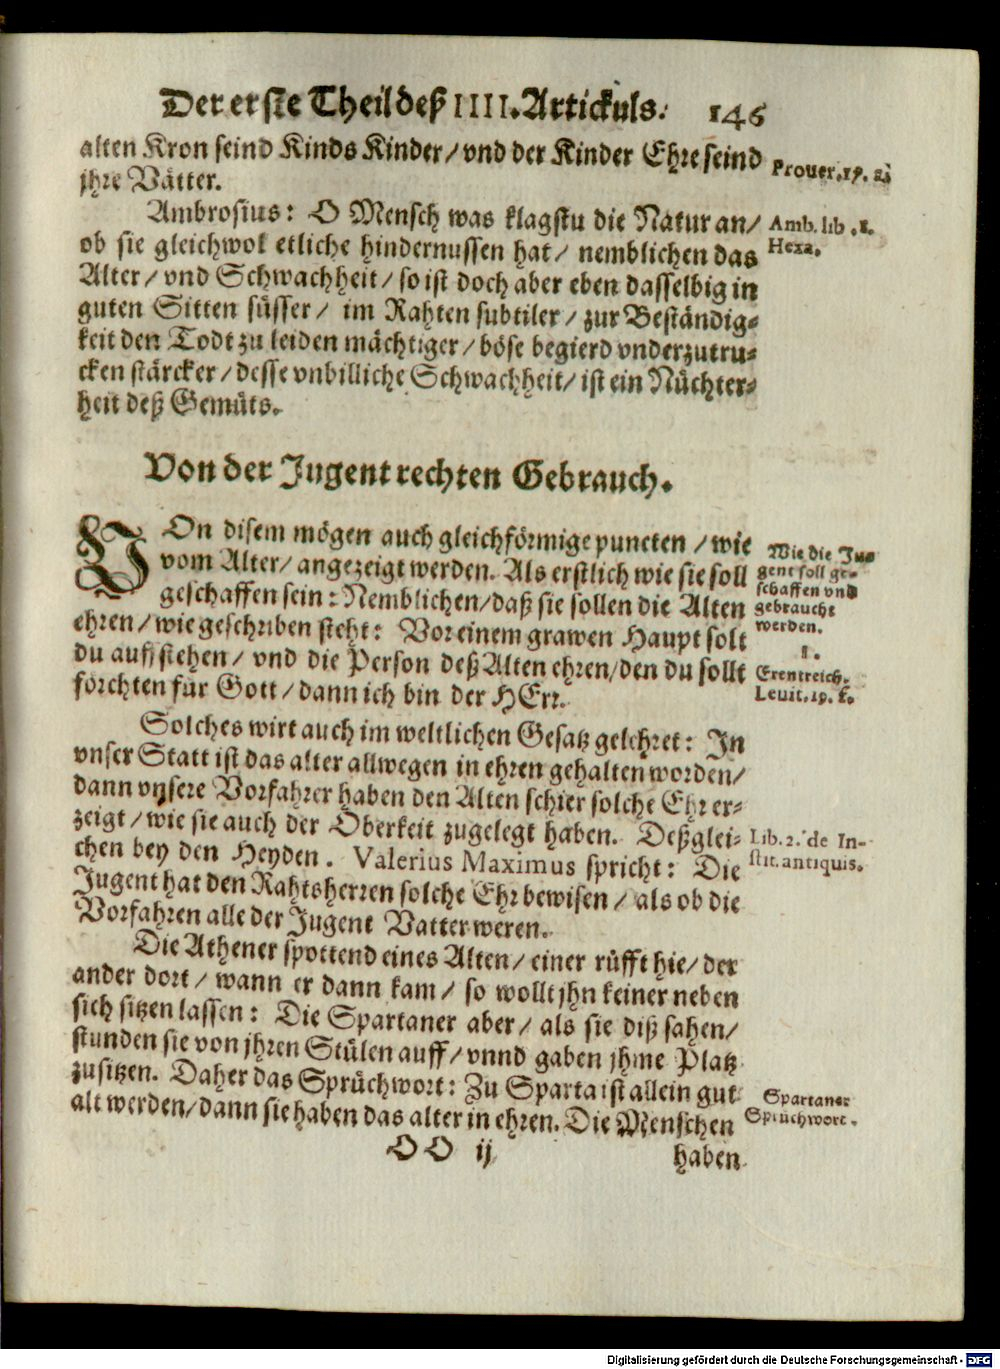 Der erste Theil deß IIII. Artickuls. 146
alten Kron seind Kinds Kinder/ vnd der Kinder Ehre seind
jhre Vätter.
Prouer. 17. a
Ambrosius: O Mensch was klagstu die Natur an/
ob sie gleichwol etliche hindernussen hat/ nemblichen das
Alter/ vnd Schwachheit/ so ist doch aber eben dasselbig in
guten Sitten süsser/ im Rahten subtiler/ zur Beständig-
keit den Todt zu leiden mächtiger/ böse begierd vnderzutru-
cken stärcker/ desse vnbilliche Schwachheit/ ist ein Nüchter-
heit deß Gemüts.
Amb. lib. 1.
Hexa.
Von der Jugent rechten Gebrauch.
VOn disem mögen auch gleichförmige puncten/ wie
vom Alter/ angezeigt werden. Als erstlich wie sie soll
geschaffen sein: Nemblichen/ daß sie sollen die Alten
ehren/ wie geschriben steht: Vor einem grawen Haupt solt
du auffstehen/ vnd die Person deß Alten ehren/ den du sollt
förchten für Gott/ dann ich bin der HErr.
Wie die Ju-
gent soll ge-
schaffen vnd
gebraucht
werden.
1.
Erentreich.
Leuit. 19. f.
Solches wirt auch im weltlichen Gesatz gelehret: In
vnser Statt ist das alter allwegen in ehren gehalten worden/
dann vnsere Vorfahrer haben den Alten schier solche Ehr er-
zeigt/ wie sie auch der Oberkeit zugelegt haben. Deßglei-
chen bey den Heyden. Valerius Maximus spricht: Die
Jugent hat den Rahtsherren solche Ehr bewisen/ als ob die
Vorfahren alle der Jugent Vatter weren.
Lib. 2. de In-
stit. antiquis.
Die Athener spottend eines Alten/ einer rüfft hie/ der
ander dort/ wann er dann kam/ so wollt jhn keiner neben
sich sitzen lassen: Die Spartaner aber/ als sie diß sahen/
stunden sie von jhren Stülen auff/ vnnd gaben jhme Platz
zusitzen. Daher das Sprüchwort: Zu Sparta ist allein gut
alt werden/ dann sie haben das alter in ehren. Die Menschen
Spartaner
Sprüchwort.
OO ij
haben
Digitalisierung gefördert durch die Deutsche Forschungsgemeinschaft - DFG